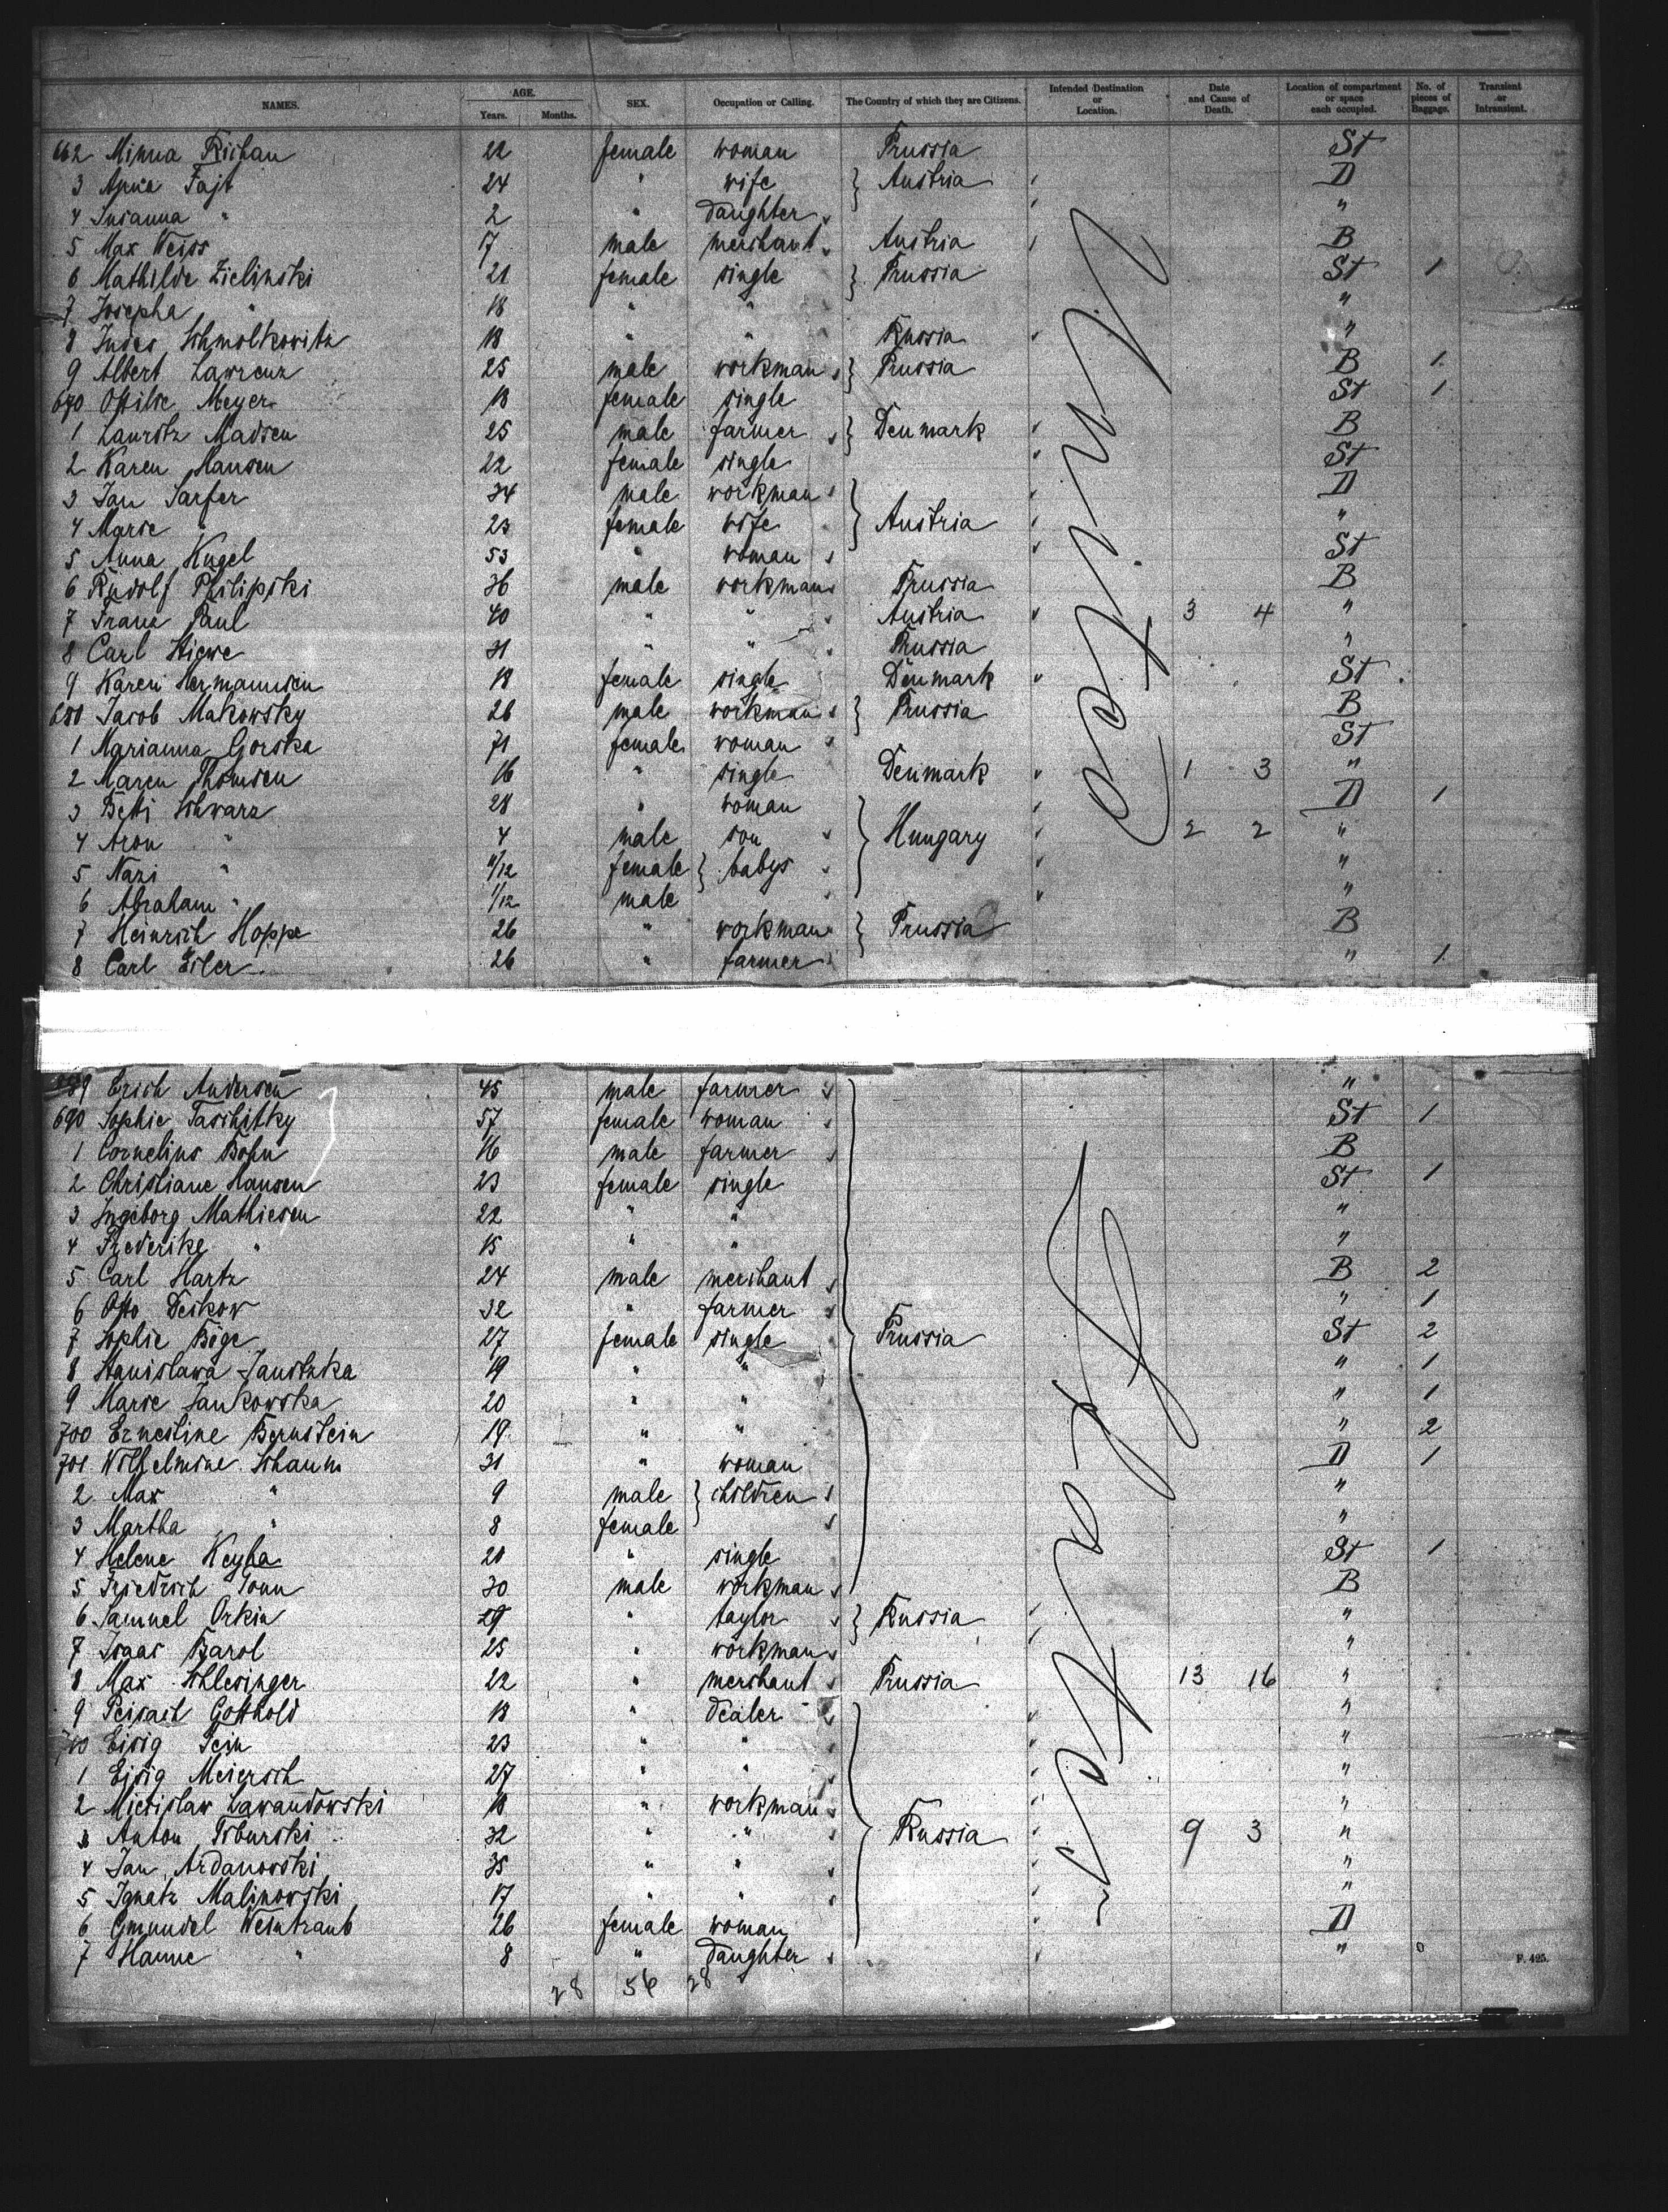 NAMES. AGE. Years. Months. SEX. Occupation or Calling. The Country of which they are Citizens. Intended Destination or Location. Date and Cause of Death. Location of compartment or space each occupied. No. of pieces of Baggage. Transient or Intransient.
662 Minna 22 female woman Prussia St
3 Anna Fajt 24 " wife } Austria D
4 Susanna " 2 " daughter "
5 Max Weiss 17 male merchant Austria B
6 Mathilde Zielinski 21 female single } Prussia St 1
7 Josepha " 18 " " "
8 Schmolkowitz 18 " " Russia "
9 Albert Lawrenz 25 male workman } Prussia B 1
670 Ottilie Meyer 18 female single St 1
1 Lauritz Madsen 25 male farmer } Denmark B
2 Karen Hansen 22 female single St
3 Jan Sarfer 34 male workman } D
4 Marie " 23 female wife Austria "
5 Anna Kugel 53 " woman St
6 Rudolf Philipski 36 male workman Prussia B
7 Franz Paul 40 " " Austria 3 4 "
8 Carl Stiewe 31 " " Prussia "
9 Karen Hermannsen 18 female single Denmark St
680 Jacob Makowsky 26 male workman } Prussia B
1 Marianna Gorska 71 female woman St
2 Maren Thomsen 16 " single Denmark 1 3 "
3 Betti Schwarz 28 " woman D 1
4 Aron " 4 male son } Hungary 2 2 "
5 Nazi " 11/12 female } babys "
6 Abraham " 1/12 male "
7 Heinrich Hoppe 26 " workman } Prussia B
8 Carl Eiler 26 " farmer " 1
689 Erich Andersen 45 male farmer "
690 Sophie Taschitky 57 female woman St 1
1 Cornelius Bohn 16 male farmer B
2 Christiane Hansen 23 female single St 1
3 Ingeborg Mathiesen 22 " " "
4 Frederike " 15 " " "
5 Carl Hartz 24 male merchant B 2
6 Otto Deskow 32 " farmer " 1
7 Sophie Böge 27 female single } Prussia St 2
8 Stanislawa 19 " " " 1
9 Marie Jankowska 20 " " " 1
700 Ernestine Bernstein 19 " " " 2
701 Wilhelmine Schaum 31 " woman D 1
2 Max " 9 male } children "
3 Martha " 8 female "
4 Helene Keyha 20 " single St 1
5 Friedrich Tonn 30 male workman B
6 Samuel Orkin 29 " taylor } Russia "
7 Isaac Barol 25 " workman "
8 Max Schlesinger 22 " merchant Prussia 13 16 "
9 Peisach Gotthold 18 " dealer "
710 Eisig Fein 23 " " "
1 Eisig Meiersch 27 " " "
2 Mieczislaw Lawandowski 18 " workman "
3 Anton Tiburski 32 " " } Russia 9 3 "
4 Jan Ardanowski 35 " " "
5 Ignatz Malinowski 17 " " "
6 Gmundel Weintraub 26 female woman D
7 Hanne " 8 " daughter "
28 56 28
F. 425.